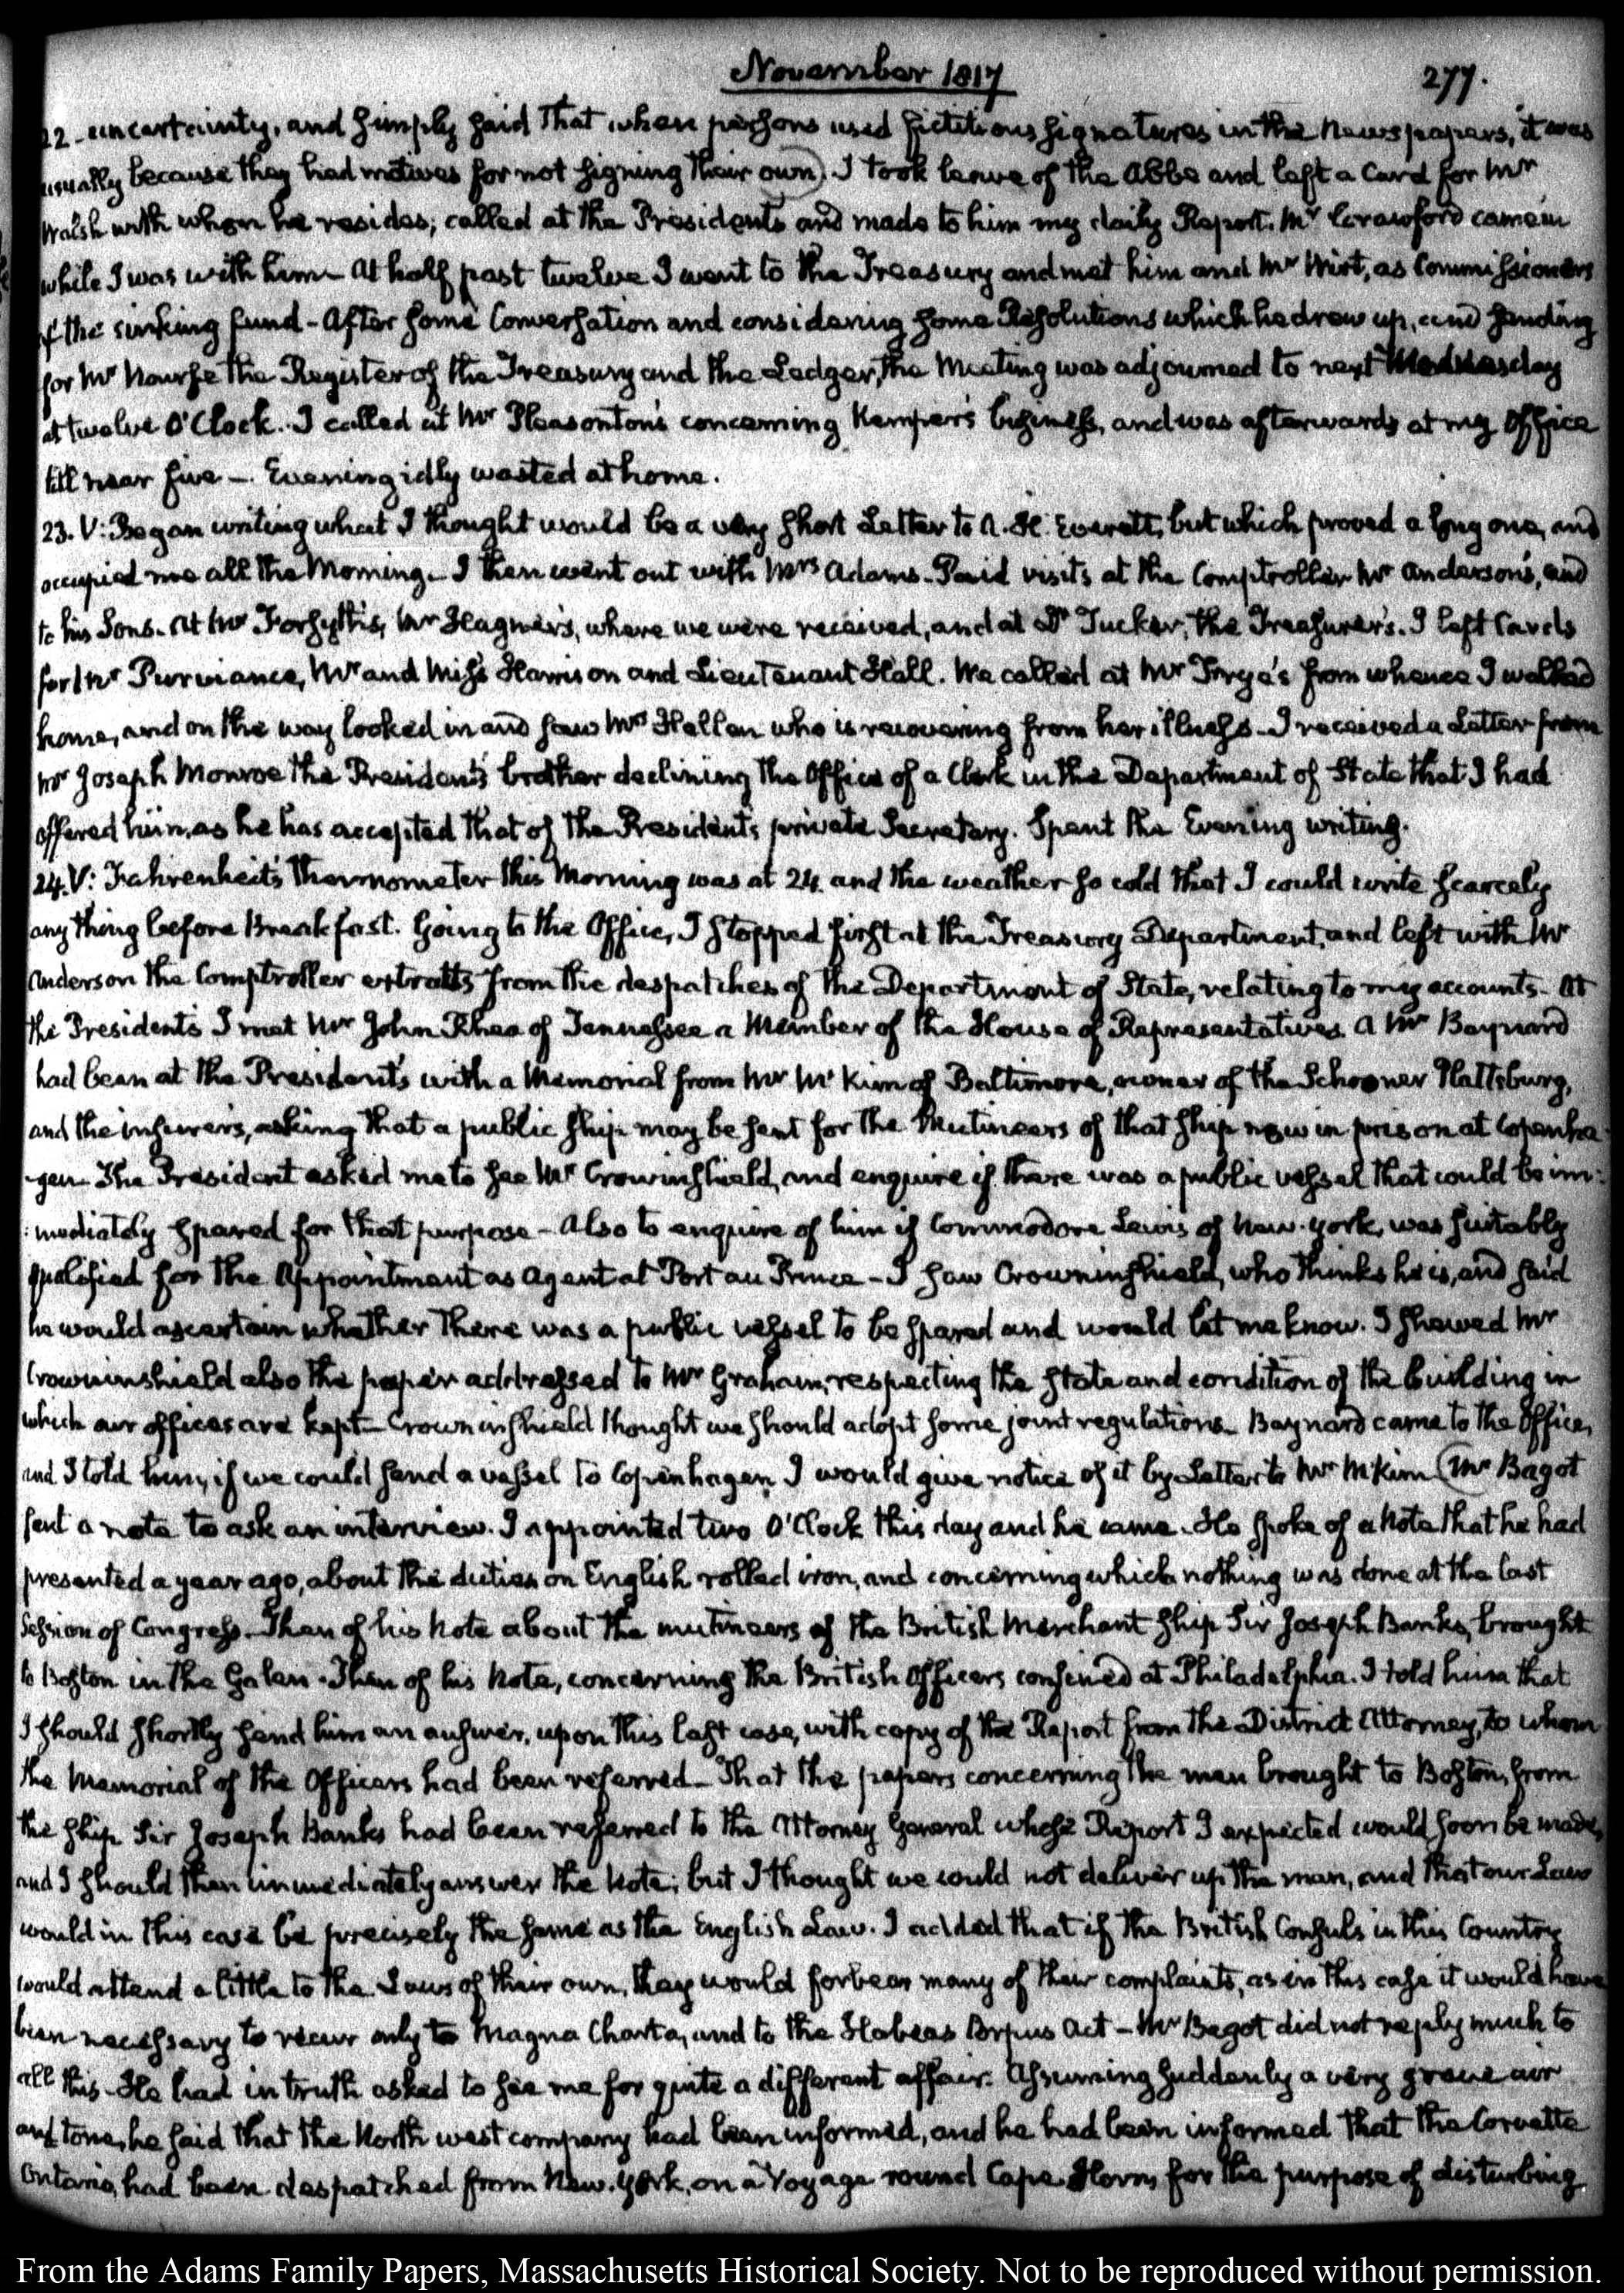 November 1817
277.
22 - uncertainty, and simply said that when persons used fictitious signatures in the Newspapers, it was
usually because they had motives for not signing their own) I took leave of the Abbé and left a Card for Mr
Walsh with whom he resides; called at the Presidents and made to him my daily Report. Mr Crawford came in
while I was with him - At half past twelve I went to the Treasury and met him and Mr Wirt, as Commissioners
of the sinking fund - After some Conversation and considering some Resolutions which he drew up, and sending
for Mr Nourse the Register of the Treasury and the Ledger, the Meeting was adjourned to next Wednesday
at twelve O'Clock. I called at Mr Pleasonton's concerning Kemper's business, and was afterwards at my Office
till near five - Evening idly wasted at home.
23. V: Began writing what I thought would be a very short Letter to A. H. Everett, but which proved a long one, and
occupied me all the Morning - I then went out with Mrs Adams - Paid visits at the Comptroller Mr Anderson's, and
to his Sons. At Mr Forsyth's, Mr Hagner's, where we were received, and at Dr Tucker, the Treasurer's. I left Cards
for Mr Purviance, Mr and Miss Harrison and Lieutenant Hall. We called at Mr Frye's from whence I walked
home, and on the way looked in and saw Mrs Hellen who is recovering from her illness - I received a Letter from
Mr Joseph Monroe the President's brother declining the Office of a Clerk in the Department of State that I had
offered him, as he has accepted that of the President's private Secretary. Spent the Evening writing.
24. V: Fahrenheit's Thermometer this Morning was at 24. and the weather so cold that I could write scarcely
any thing before Breakfast. Going to the Office, I stopped first at the Treasury Department, and left with Mr
Anderson the Comptroller extracts from the despatches of the Department of State, relating to my accounts - At
the Presidents I met Mr John Rhea of Tennessee a Member of the House of Representatives. A Mr Baynard
had been at the President's with a Memorial from Mr McKim of Baltimore, owner of the Schooner Plattsburg,
and the insurers, asking that a public ship may be sent for the Mutineers of that ship now in prison at Copenha-
-gen - The President asked me to see Mr Crowninshield, and enquire if there was a public vessel that could be im:
:mediately spared for that purpose - Also to enquire of him if Commodore Lewis of New-York, was suitably
qualified for the Appointment as Agent at Port au Prince - I saw Crowninshield, who thinks he is, and said
he would ascertain whether there was a public vessel to be spared and would let me know. I shewed Mr
Crowninshield also the paper addressed to Mr Graham, respecting the state and condition of the building in
which our offices are kept - Crowninshield thought we should adopt some joint regulations - Baynard came to the Office,
and I told him, if we could send a vessel to Copenhagen I would give notice of it by Letter to Mr McKim (Mr Bagot
sent a note to ask an interview. I appointed two O'Clock this day and he came. He spoke of a Note that he had
presented a year ago, about the duties on English rolled iron, and concerning which nothing was done at the last
Session of Congress. Then of his Note about the mutineers of the British Merchant ship Sir Joseph Banks, brought
to Boston in the Galen - Then of his Note, concerning the British Officers confined at Philadelphia. I told him that
I should shortly send him an answer, upon this last case, with copy of the Report from the District Attorney, to whom
the Memorial of the Officers had been referred - That the papers concerning the men brought to Boston, from
the ship Sir Joseph Banks had been referred to the Attorney General whose Report I expected would soon be made,
and I should then immediately answer the Note; but I thought we could not deliver up the men, and that our Law
would in this case be precisely the same as the English Law. I added that if the British Consuls in this Country
would attend a little to the Laws of their own, they would forbear many of their complaints, as in this case it would have
been necessary to recur only to Magna Charta, and to the Habeas Corpus Act - Mr Bagot did not reply much to
all this - He had in truth asked to see me for quite a different affair. Assuming suddenly a very grave air
and tone, he said that the North west company had been informed, and he had been informed that the Corvette
Ontario, had been despatched from New-York, on a Voyage round Cape Horn, for the purpose of disturbing
From the Adams Family Papers, Massachusetts Historical Society. Not to be reproduced without permission.